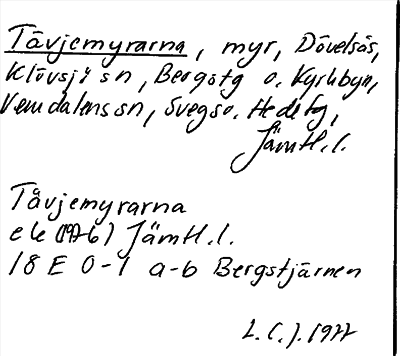 Tåvjemyrarna, myr, Dövelsås,
Klövsjö sn, Bergs tg o. Kyrkbyn,
Vemdalens sn, Svegs o. Hede tg,
Jämtl. l.
Tåvjemyrarna
ek (1976) Jämtl. l.
18 E 0-1 a-b Bergstjärnen
L. C. J. 1977